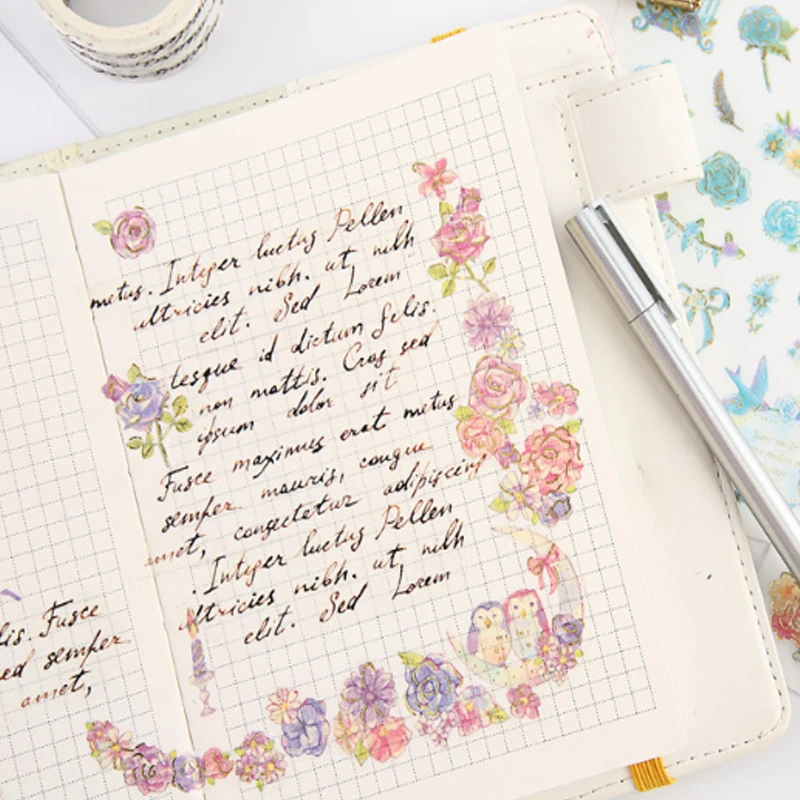 lis. Fusce
sed semper
amet,
Pellen
metus. Integer luctus
ultricies nibh. ut nibh
elit. Sed Lorem
tesque id dictum felis.
non mattis. Cras sed
ipsum dolor sit
Fusce maximus erat metus
semper mauris, congue
amet, consectetur adipiscing
. Integer luctus Pellen
ultricies nibh. ut nibh
elit. Sed Lorem